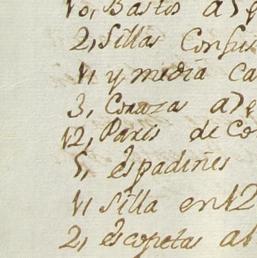 10, Bastos a
2, Sillas Confu
11 y media ca
3, Corazas a
12, Pares de Co
5, espadines
11 Silla en 12
2, escopetas al